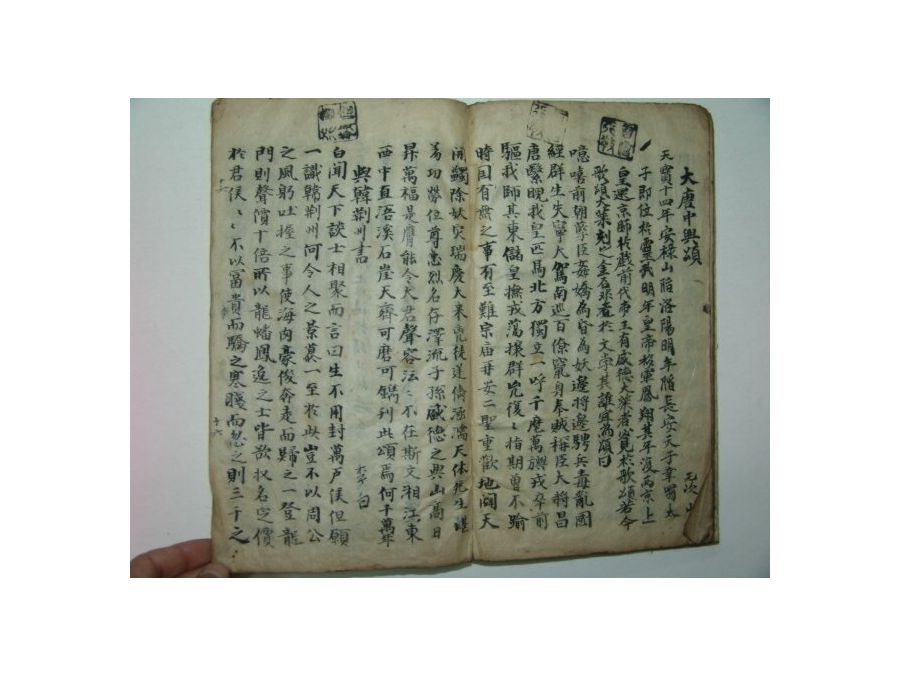 大唐中興頌 元次山
天寶十四年安祿山陷洛陽明年陷長安天子幸蜀太
子即位於靈武明年皇帝移軍鳳翔其年復兩京上
皇還京師於戲前代帝王有盛德大業者必見於歌頌若今
歌頌大業刻之金石非老於文學其誰宜為頌曰
噫嘻前朝孽臣姦嬌為昏為妖邊將騁兵毒亂國
經群生失寧大駕南巡百僚竄身奉賊稱臣大將昌
唐繄睨我皇匹馬北方獨立一呼千麾萬旟戎卒前
驅我師其東儲皇撫戎蕩攘群兇復〻指期曾不踰
時国有無之事有至難宗庙再安二聖重歡地闢天
開蠲除妖災瑞慶大来兇徒逆儔涵濡天休死生堪
羞功勞位尊忠烈名存澤流子孫盛德之興山高日
昇萬福是膺能令大君聲容法〻不在斯文湘江東
西中直浯溪石崖天齊可磨可鐫刊此頌焉何千萬年
與韓荊州書 李白
白聞天下談士相聚而言曰生不用封萬戶侯但願
一識韓荊州何令人之景慕一至於此豈不以周公
之風躬吐握之事使海內豪俊奔走而歸之一登龍
門則聲價十倍所以龍蟠鳳逸之士皆欲收名定價
於君侯〻〻不以富貴而驕之寒賤而忽之則三千之
十六